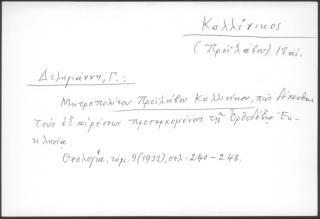 Καλλίνικος
(Προϊλάβου) 18 αι.
Δεληγιάννη, Γ.:
Μητροπολίτου Προϊλάβου Καλλινίκου, πῶς δέχεσθαι
τοὺς ἐξ αἱρέσεων προσερχομένους τῇ Ὀρθοδόξῳ Ἐκ-
κλησίᾳ.
Θεολογία, τόμ. 9 (1931), σελ. 240-248.